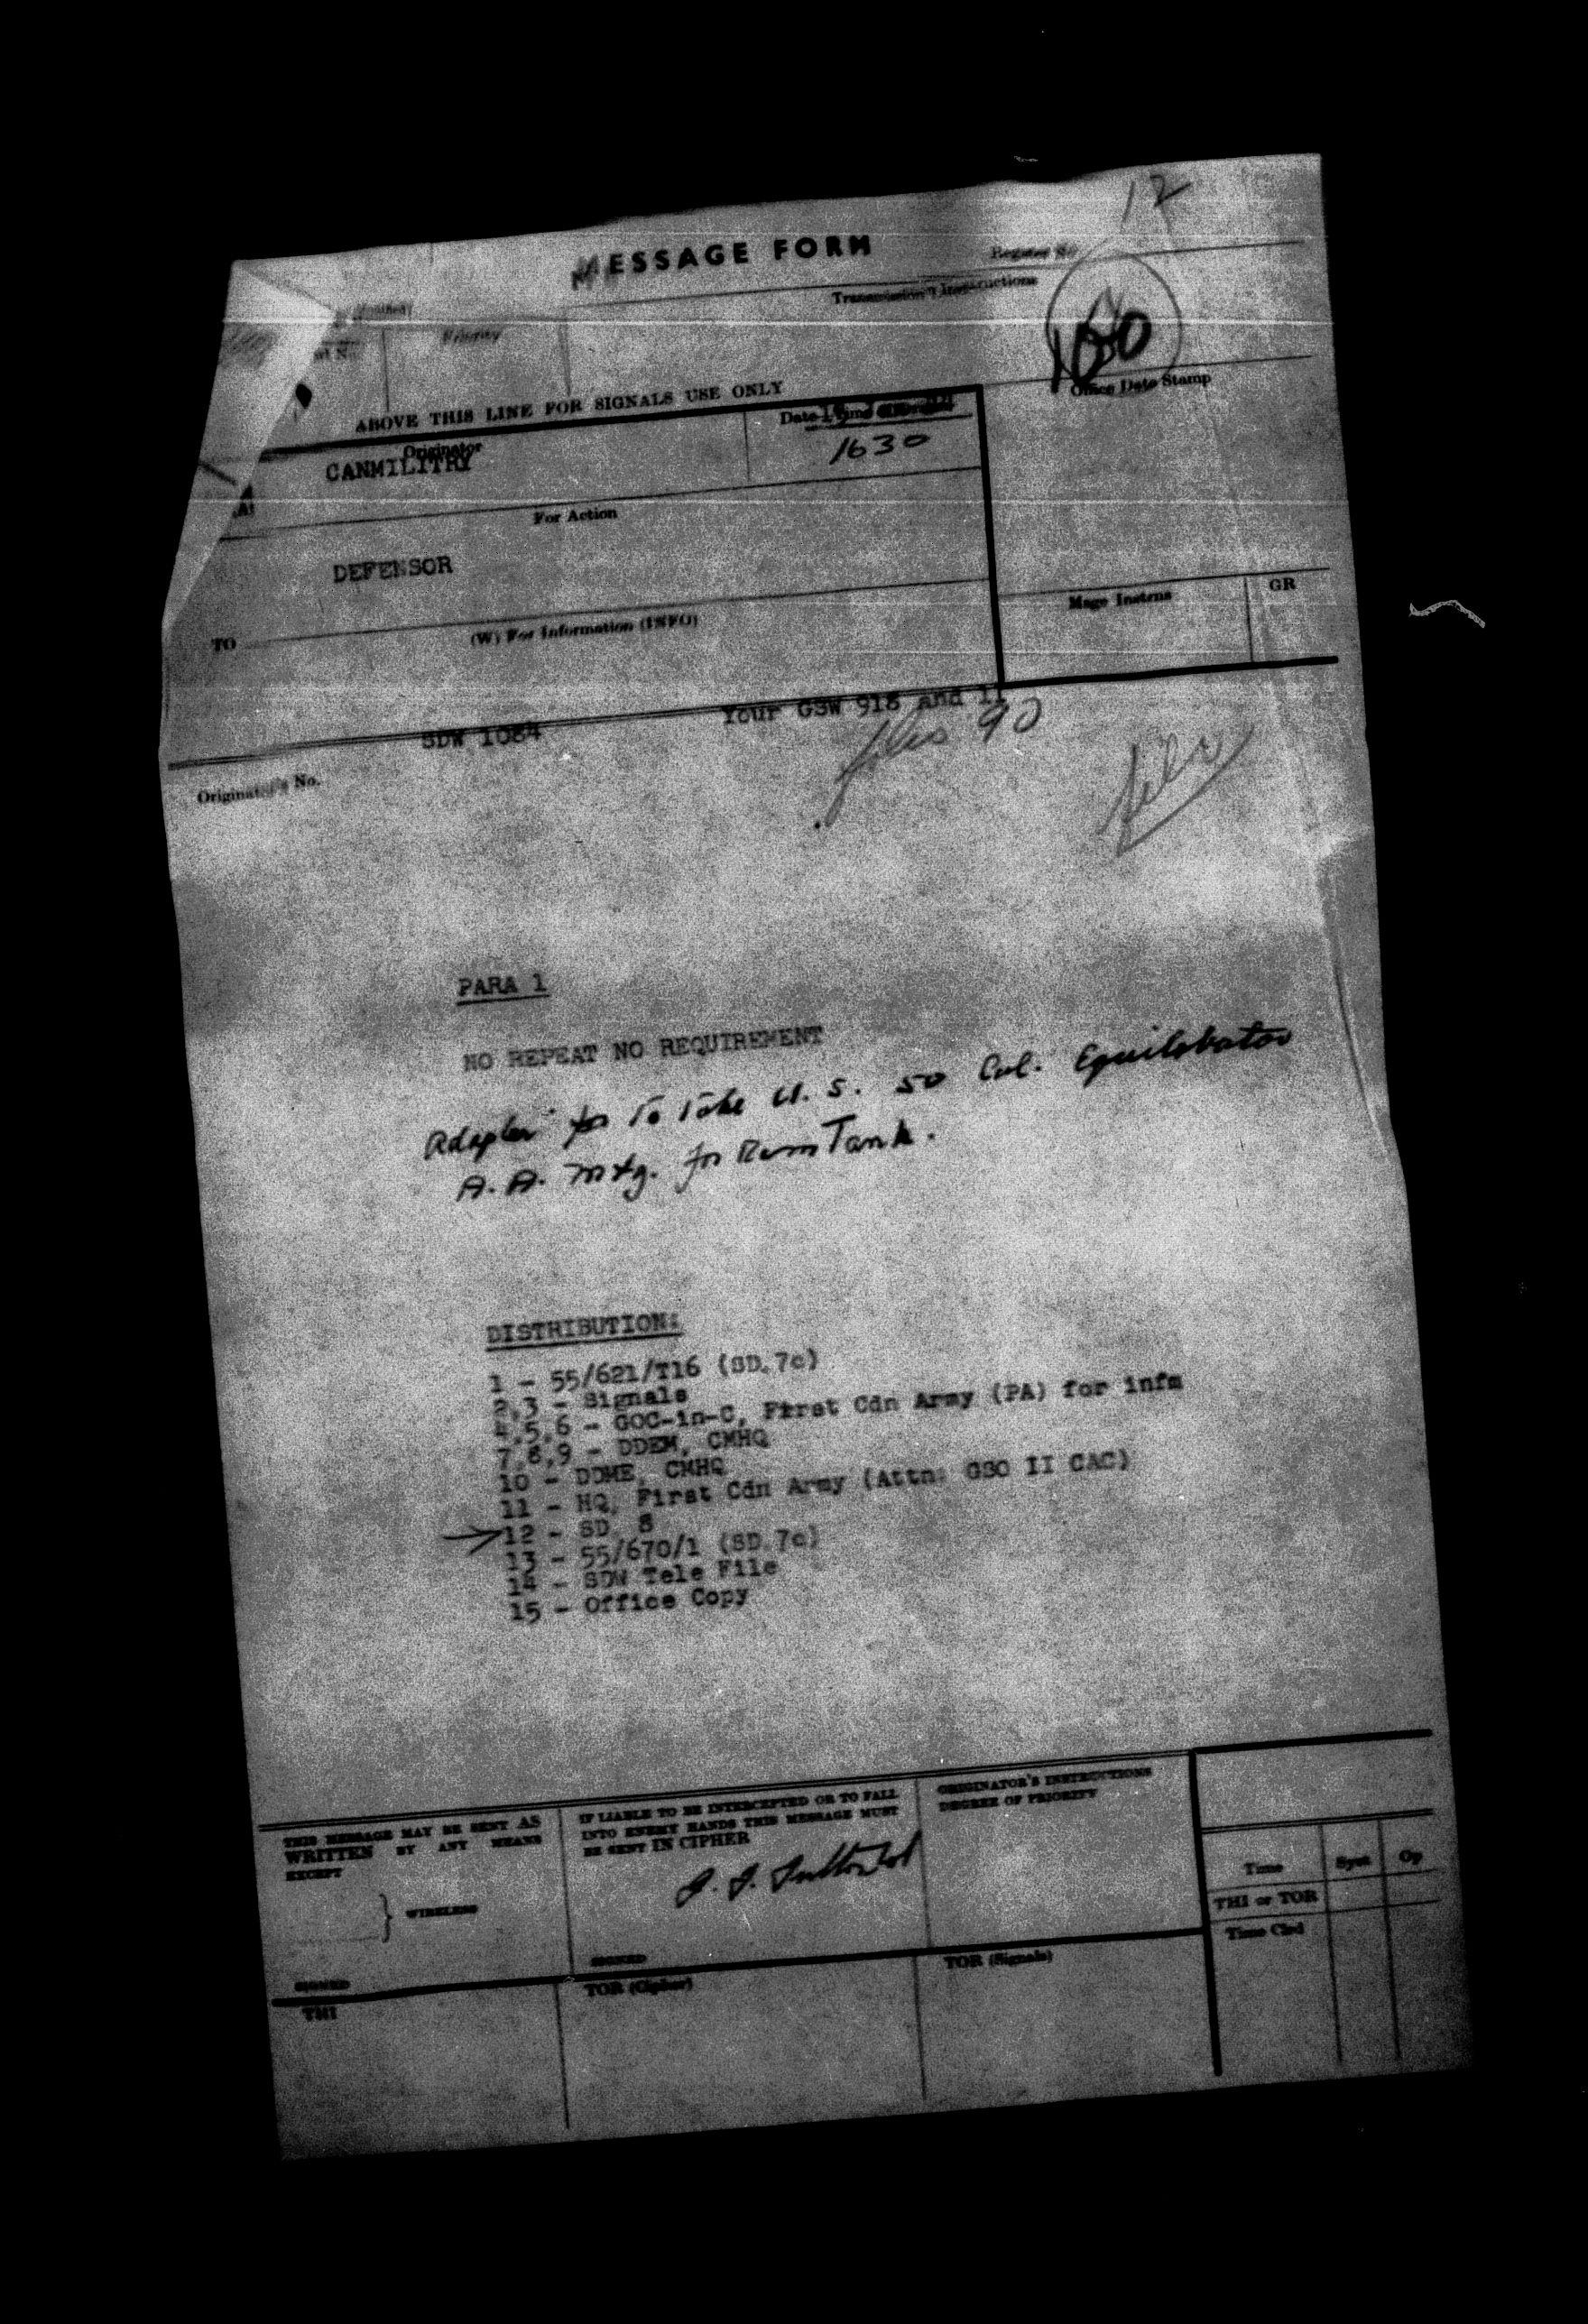 12
MESSAGE FORM
Register No.
Transmission Instructions
Priority
100
Office Date Stamp
ABOVE THIS LINE FOR SIGNALS USE ONLY
Originator
Date-Time
CANMILITRY
1630
For Action
DEFENSOR
Msge Instrns
GR
TO
(W) For Information (INFO)
SDW 1084
Your GSW 918 and 11
files 90
file
Originator's No.
PARA 1
NO REPEAT NO REQUIREMENT
Adapter for To Take U.S. 50 Cal. Equilobrator
A.A. Mtg. for Ram Tank.
DISTRIBUTION:
1 - 55/621/T16 (SD.7c)
2,3 - Signals
4,5,6 - GOC-in-C, First Cdn Army (PA) for infm
7,8,9 - DDEM, CMHQ
10 - DDME, CMHQ
11 - HQ, First Cdn Army (Attn: GSO II CAC)
12 - SD 8
13 - 55/670/1 (SD 7c)
14 - SDW Tele File
15 - Office Copy
THIS MESSAGE MAY BE SENT AS
WRITTEN BY ANY MEANS
EXCEPT
WIRELESS
SIGNED
IF LIABLE TO BE INTERCEPTED OR TO FALL
INTO ENEMY HANDS THIS MESSAGE MUST
BE SENT IN CIPHER
SIGNED
ORIGINATOR'S INSTRUCTIONS
DEGREE OF PRIORITY
Time
Syst
Op
THI or TOR
Time Clrd
THI
TOR (Cipher)
TOR (Signals)